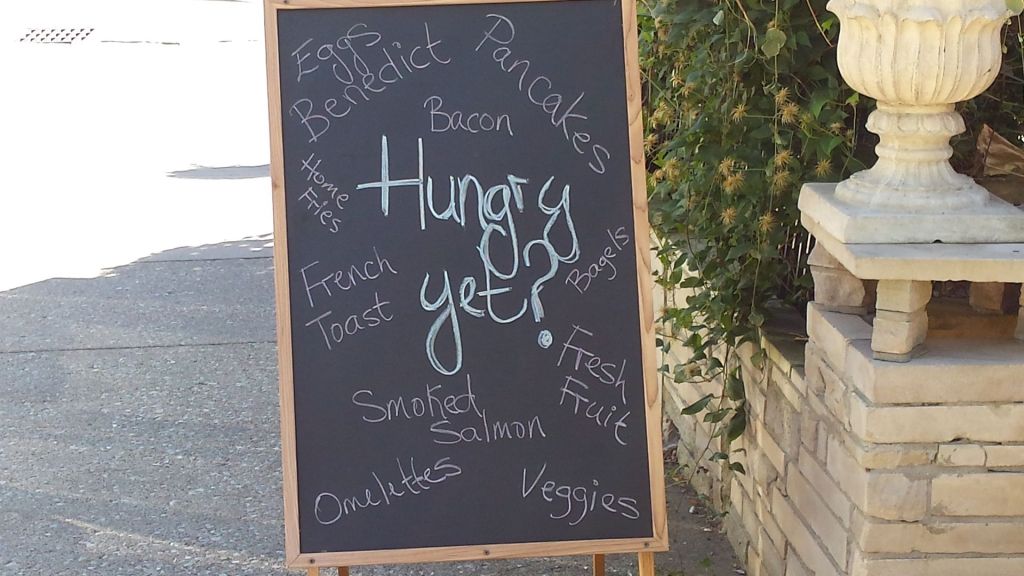 Eggs
Benedict
Pancakes
Bacon
Home
Fries
Hungry
yet?
French
Toast
Bagels
Fresh
Fruit
Smoked
Salmon
Omelettes
Veggies